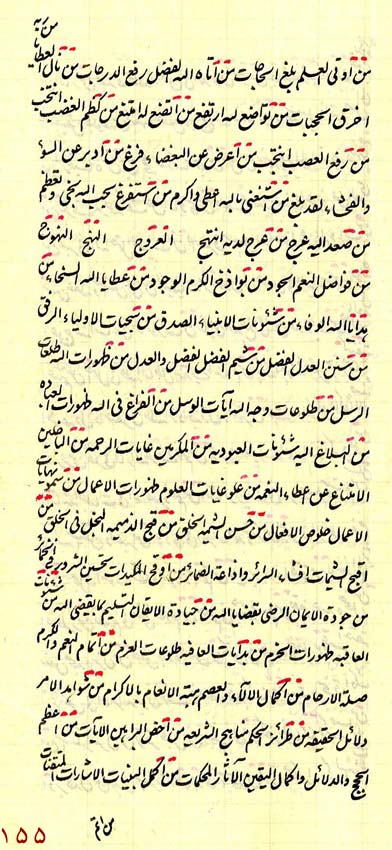 من ربه
من اوتى العلم بلغ السجات من اتاه الله الفضل رفع الدرجات من نال العطايا
اخرق الحجبات من تواضع لله ارتفع من اتضع لله امتنع من كظم الغضب انتخب
من رفع العصب انتجب من اعرض عن البغضاء فزع من ادبر عن السوء
والفحشاء لقد بلغ من استغنى بالله اعطى واكرم من استفزع بسحب الله نجى وتعظم
من صعد اليه عرج من عرج لديه انتهج العروج النهج النهوج
من فواضل النعم الجود من بواذخ الكرم الوجود من عطايا الله السخاء من
هدايا الله الوفاء من شئونات الانبياء الصدق من سجيات الاولياء الرفق
من سنن العدل الفضل من شيم الفضل الفضل والعدل من ظهورات الله طلعات
الرسل من طلوعات وجه الله آيات الوسل من الفراغ فى الله ظهورات العباده
من البلاغ اليه شئونات العبوديه من المكرمين غايات الرحمه من الباذلين
الامتناع عن عطاء النعمه من علوعيات العلوم ظهورات الاعمال من سمويات نهايات
الاعمال خلوص الافعال من حسن الشيمه الخلق من قبح الذميمه البخل فى الخلق من
اقبح الشيمات افشاء السرائر واذاعة الضمائر من اوقح المكيدات تحسين الشرور من اقبح
من جودة الايمان الرضى بقضايا الله من جيادة الايقان التسليم بما يقضى الله من شئونات
العاقبه ظهورات الحزم من بدايات العافيه طلوعات العزم من اتمام النعم والكرم
صلة الارحام من اكمال الآلاء والعصم هبة الانعام بالاكرام من شواهد الامر
دلائل الحقيقه من طرائز الحكم مناهج الشريعه من احض البراهين الآيات من اعظم
الحجج والدلائل واكمال اليقين الآثار المحكمات من اكمل البينات الاشارات المتقنات
من اتم
١٥٥